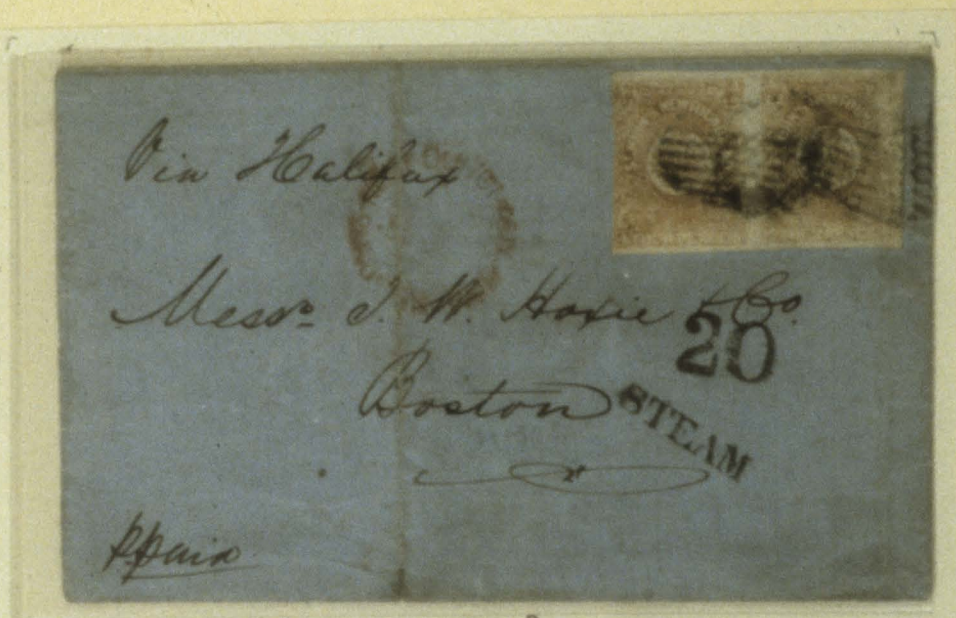 Via Halifax
Messrs J. W. Hoxie & Co.
20
Boston
STEAM
p.paid